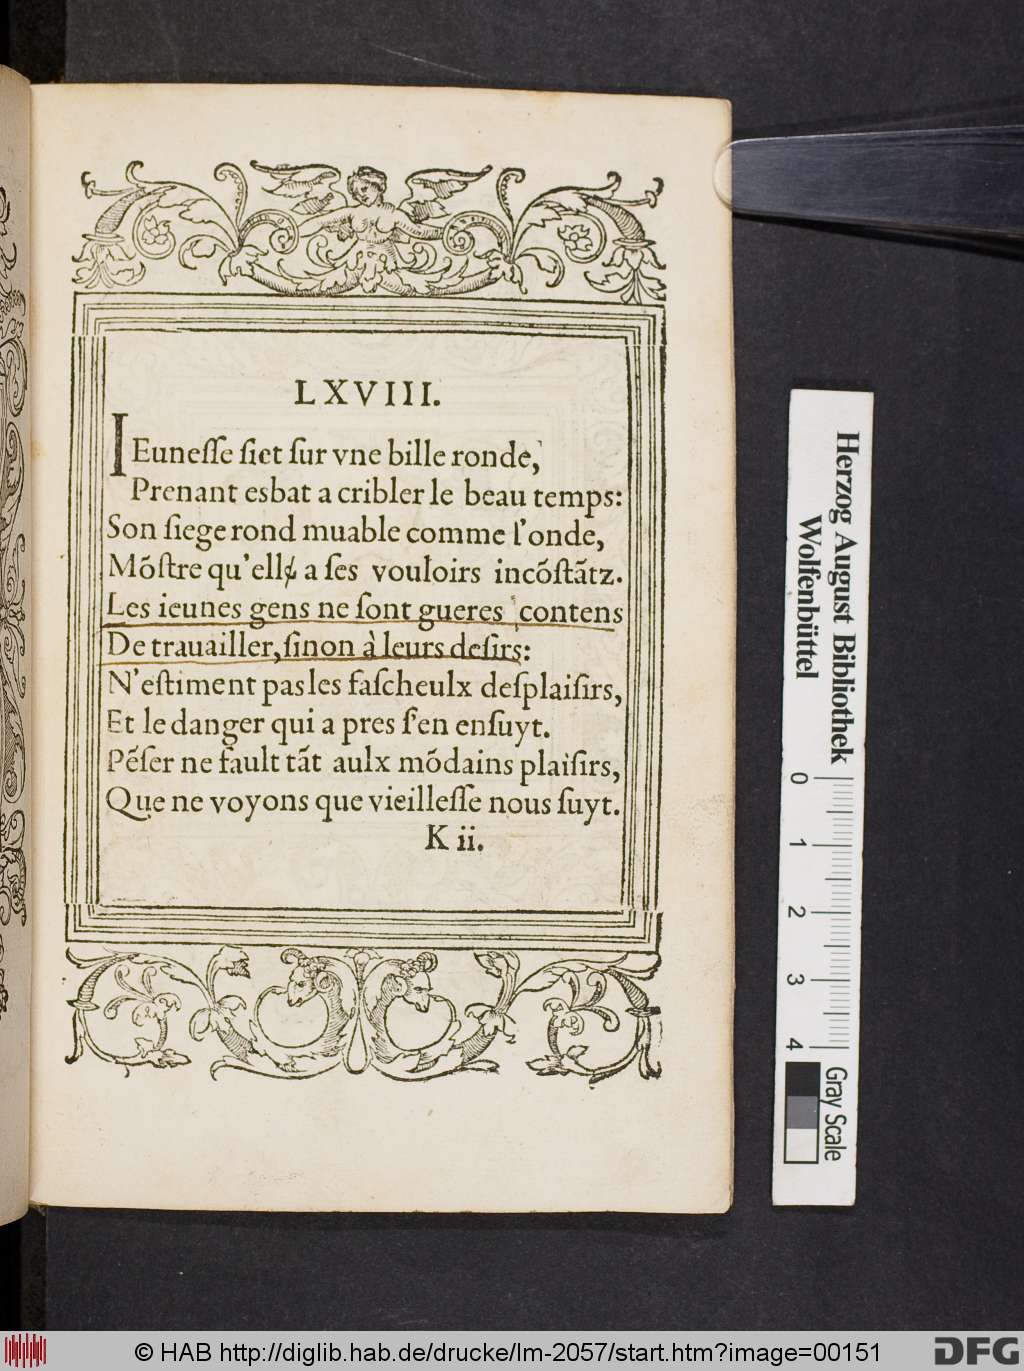 LXVIII.
IEunesse siet sur vne bille ronde,
Prenant esbat a cribler le beau temps:
Son siege rond muable comme l'onde,
Mõstre qu'ellɇ a ses vouloirs incõstãtz.
Les ieunes gens ne sont gueres contens
De trauailler, sinon à leurs desirs:
N'estiment pas les fascheulx desplaisirs,
Et le danger qui a pres s'en ensuyt.
Pẽser ne fault tãt aulx mõdains plaisirs,
Que ne voyons que vieillesse nous suyt.
K ii.
Herzog August Bibliothek
Wolfenbüttel
0 1 2 3 4
Gray Scale
© HAB http://diglib.hab.de/drucke/lm-2057/start.htm?image=00151
DFG